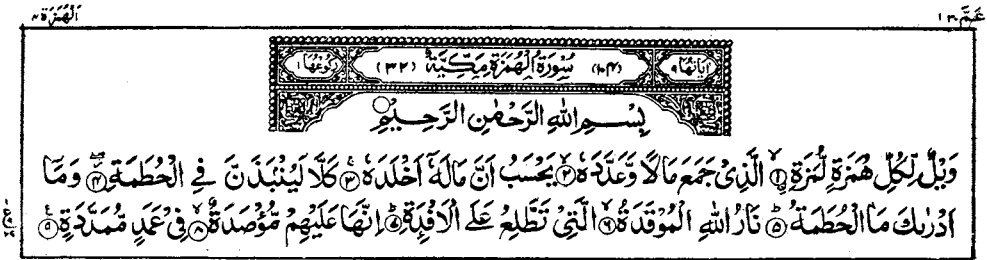 عَمَّ ٣٠
اَلْهُمَزَة
اٰيَاتُهَا ٩
(١٠٤) سُوْرَةُ الْهُمَزَةِ مَكِّيَّةٌ (٣٢)
رُكُوْعُهَا ١
بِسْمِ اللهِ الرَّحْمٰنِ الرَّحِيْمِ
وَيْلٌ لِّكُلِّ هُمَزَةٍ لُّمَزَةِ ۙ‏﴿۱﴾ الَّذِىْ جَمَعَ مَالًا وَّعَدَّدَهٗ ۙ‏﴿۲﴾ يَحْسَبُ اَنَّ مَالَهٗۤ اَخْلَدَهٗ ۚ‏﴿۳﴾ كَلَّا لَيُنْۢبَذَنَّ فِى الْحُطَمَةِ ۖ‏﴿۴﴾ وَمَاۤ
اَدْرٰىكَ مَا الْحُطَمَةُ ؕ‏﴿۵﴾ نَارُ اللهِ الْمُوْقَدَةُ ۙ‏﴿۶﴾ الَّتِىْ تَطَّلِعُ عَلَى الْاَفْئِدَةِ ؕ‏﴿۷﴾ اِنَّهَا عَلَيْهِمْ مُّؤْصَدَةٌ ۙ‏﴿۸﴾ فِىْ عَمَدٍ مُّمَدَّدَةٍ ۚ‏﴿۹﴾